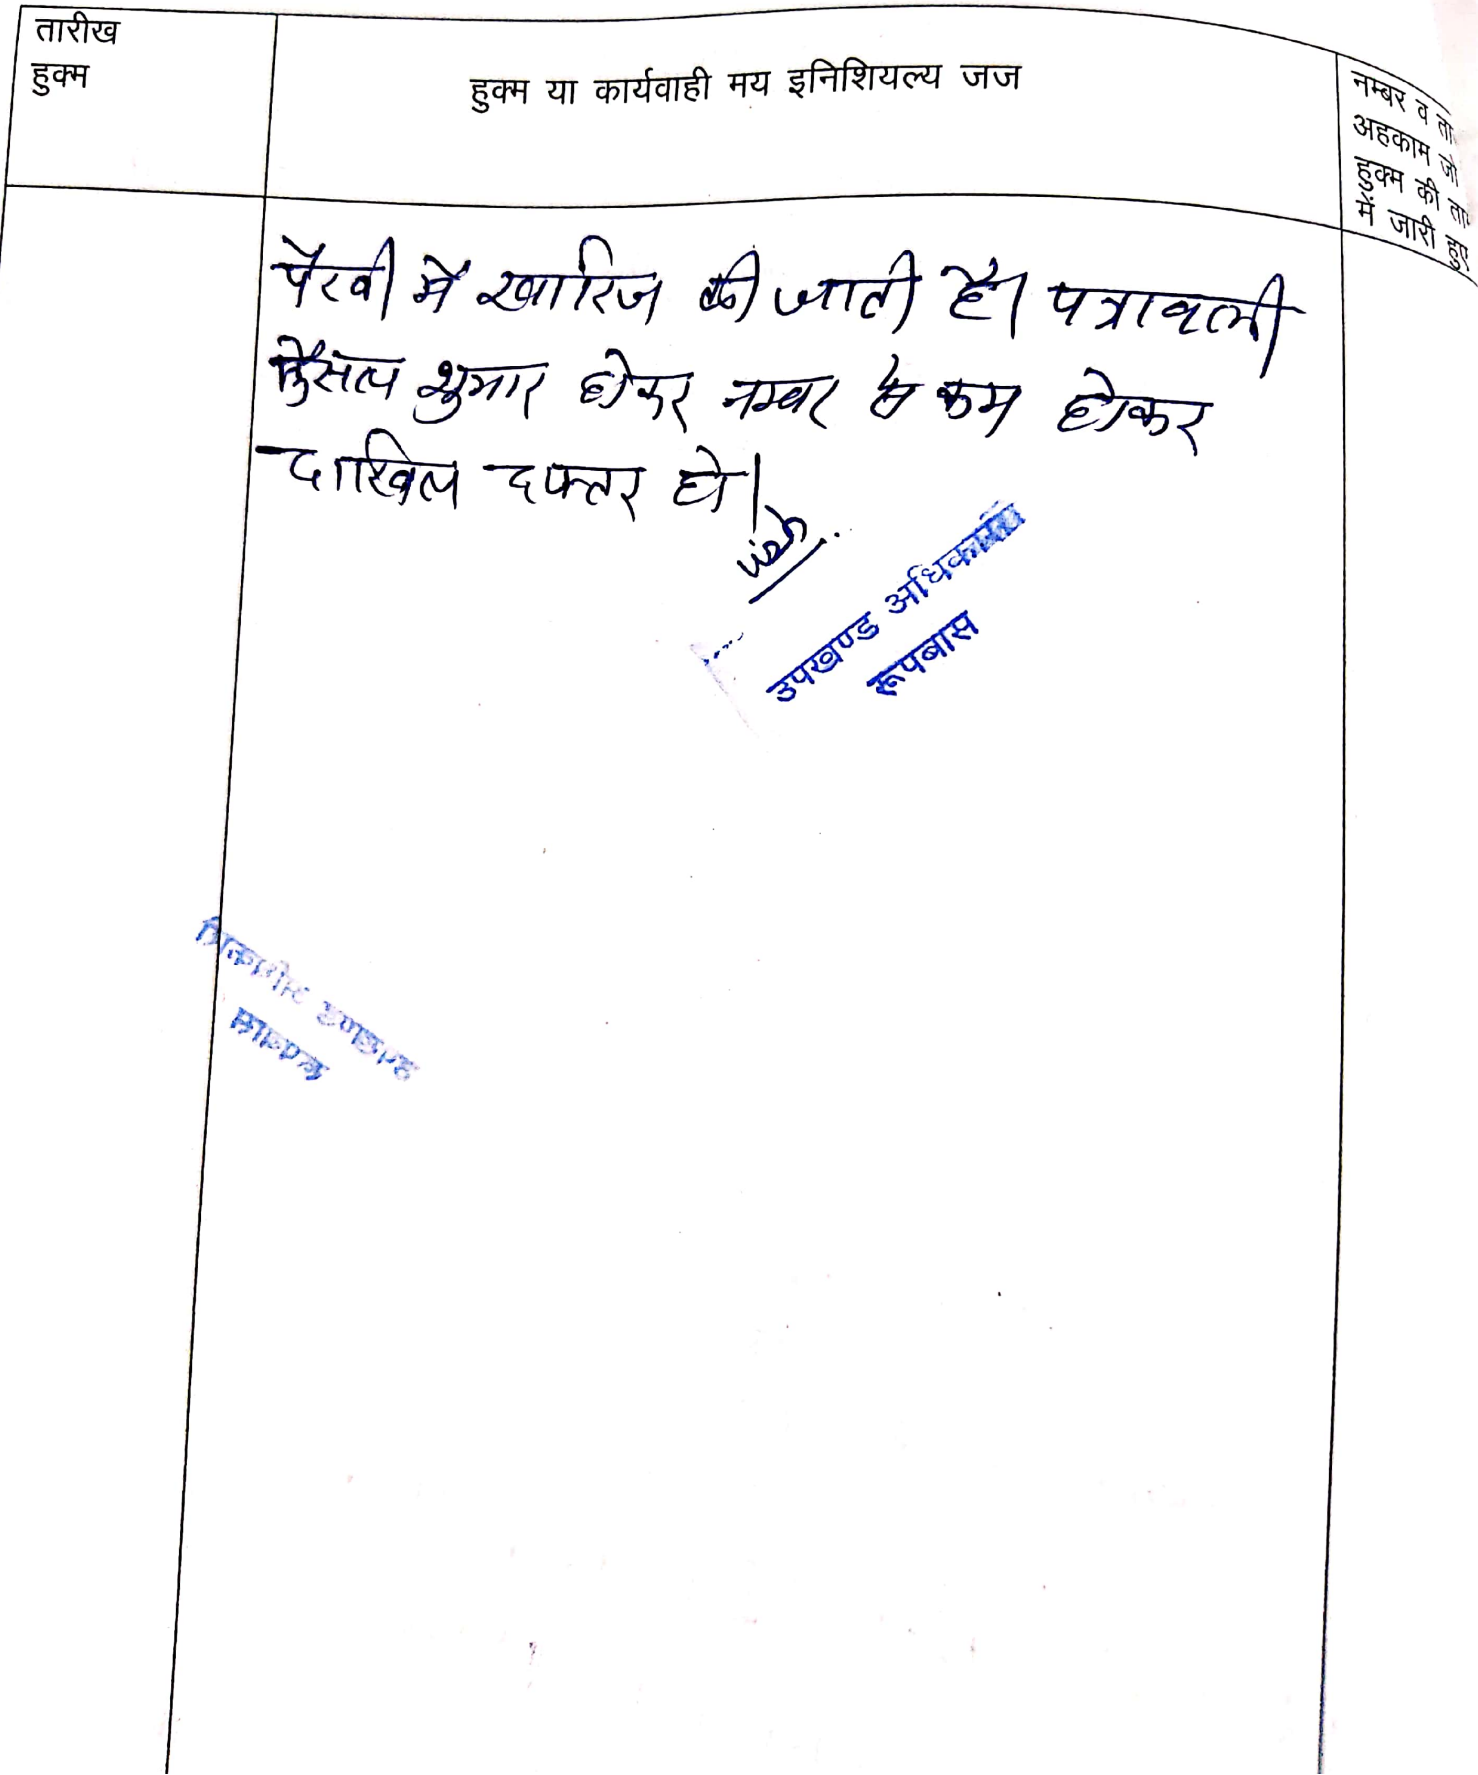 तारीख
हुक्म
हुक्म या कार्यवाही मय इनिशियल्य जज
नम्बर व ता
अहकाम जो
हुक्म की ता
में जारी हुए
पैरवी में खारिज की जाती है। पत्रावली
फैसल शुमार होकर नम्बर से कम होकर
दाखिल दफ्तर हो।
उपखण्ड अधिकारी
रूपबास